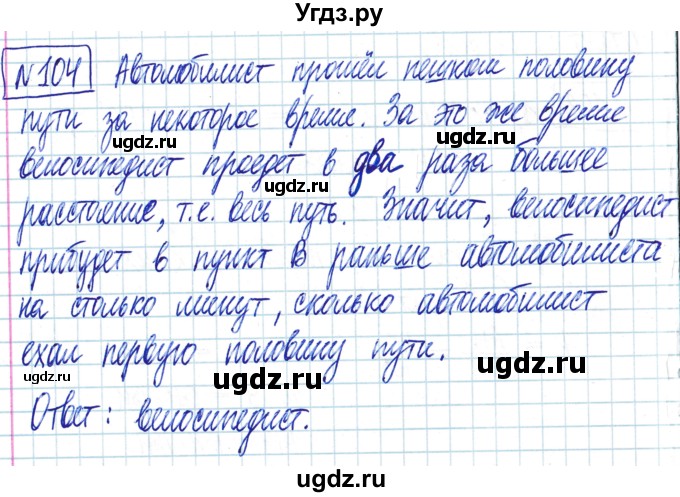 Угдз.ру
№104 Автомобилист прошёл пешком половину
пути за некоторое время. За это же время
велосипедист проедет в два раза большее
расстояние, т.е. весь путь. Значит, велосипедист
прибудет в пункт В раньше автомобилиста
на столько минут, сколько автомобилист
ехал первую половину пути.
Ответ: велосипедист.
ugdz.ru
ugdz.ru
ugdz.ru
ugdz.ru
ugdz.ru
ugdz.ru
ugdz.ru
ugdz.ru
ugdz.ru
ugdz.ru
ugdz.ru
ugdz.ru
ugdz.ru